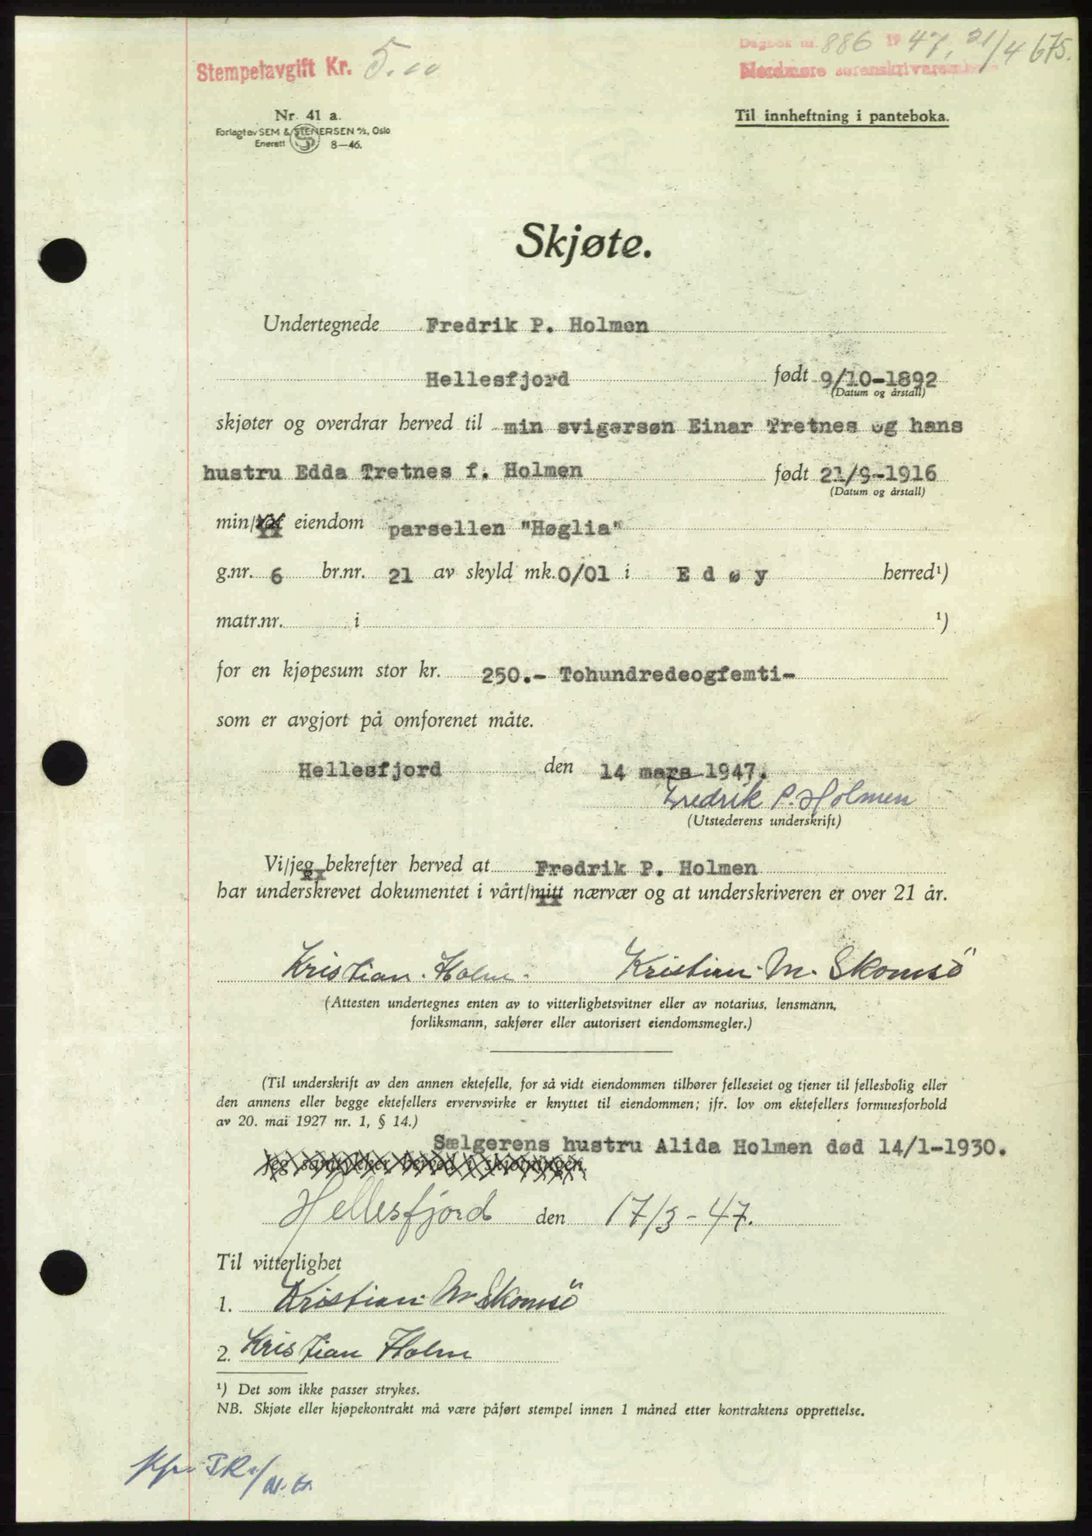 Stempelavgift Kr. 5.00
Dagbok nr. 886 1947, 21/4 675.
Nordmøre sorenskriverembete
Nr. 41 a.
Forlagt av SEM & STENERSEN A/S, Oslo
Enerett 8—46.
Til innheftning i panteboka.
Skjøte.
Undertegnede Fredrik P. Holmen
Hellesfjord født 9/10-1892
(Datum og årstall)
skjøter og overdrar herved til min svigersøn Einar Tretnes og hans
hustru Edda Tretnes f. Holmen født 21/9-1916
(Datum og årstall)
min/vår eiendom parsellen "Høglia"
g.nr. 6 br.nr. 21 av skyld mk. 0/01 i Edøy herred¹)
matr.nr. i ¹)
for en kjøpesum stor kr. 250.- Tohundredeogfemti-
som er avgjort på omforenet måte.
Hellesfjord den 14 mars 1947.
Fredrik P. Holmen
(Utstederens underskrift)
Vi/jeg bekrefter herved at Fredrik P. Holmen
har underskrevet dokumentet i vårt/mitt nærvær og at underskriveren er over 21 år.
Kristian Holm. Kristian M. Skomsö
(Attesten undertegnes enten av to vitterlighetsvitner eller av notarius, lensmann,
forliksmann, sakfører eller autorisert eiendomsmegler.)
(Til underskrift av den annen ektefelle, for så vidt eiendommen tilhører felleseiet og tjener til fellesbolig eller
den annens eller begge ektefellers ervervsvirke er knyttet til eiendommen; jfr. lov om ektefellers formuesforhold
av 20. mai 1927 nr. 1, § 14.)
Sælgerens hustru Alida Holmen død 14/1-1930.
Jeg samtykker herved i skjøtningen.
Hellesfjord den 17/3-47.
Til vitterlighet
1. Kristian M. Skomsö
2. Kristian Holm
¹) Det som ikke passer strykes.
NB. Skjøte eller kjøpekontrakt må være påført stempel innen 1 måned etter kontraktens opprettelse.